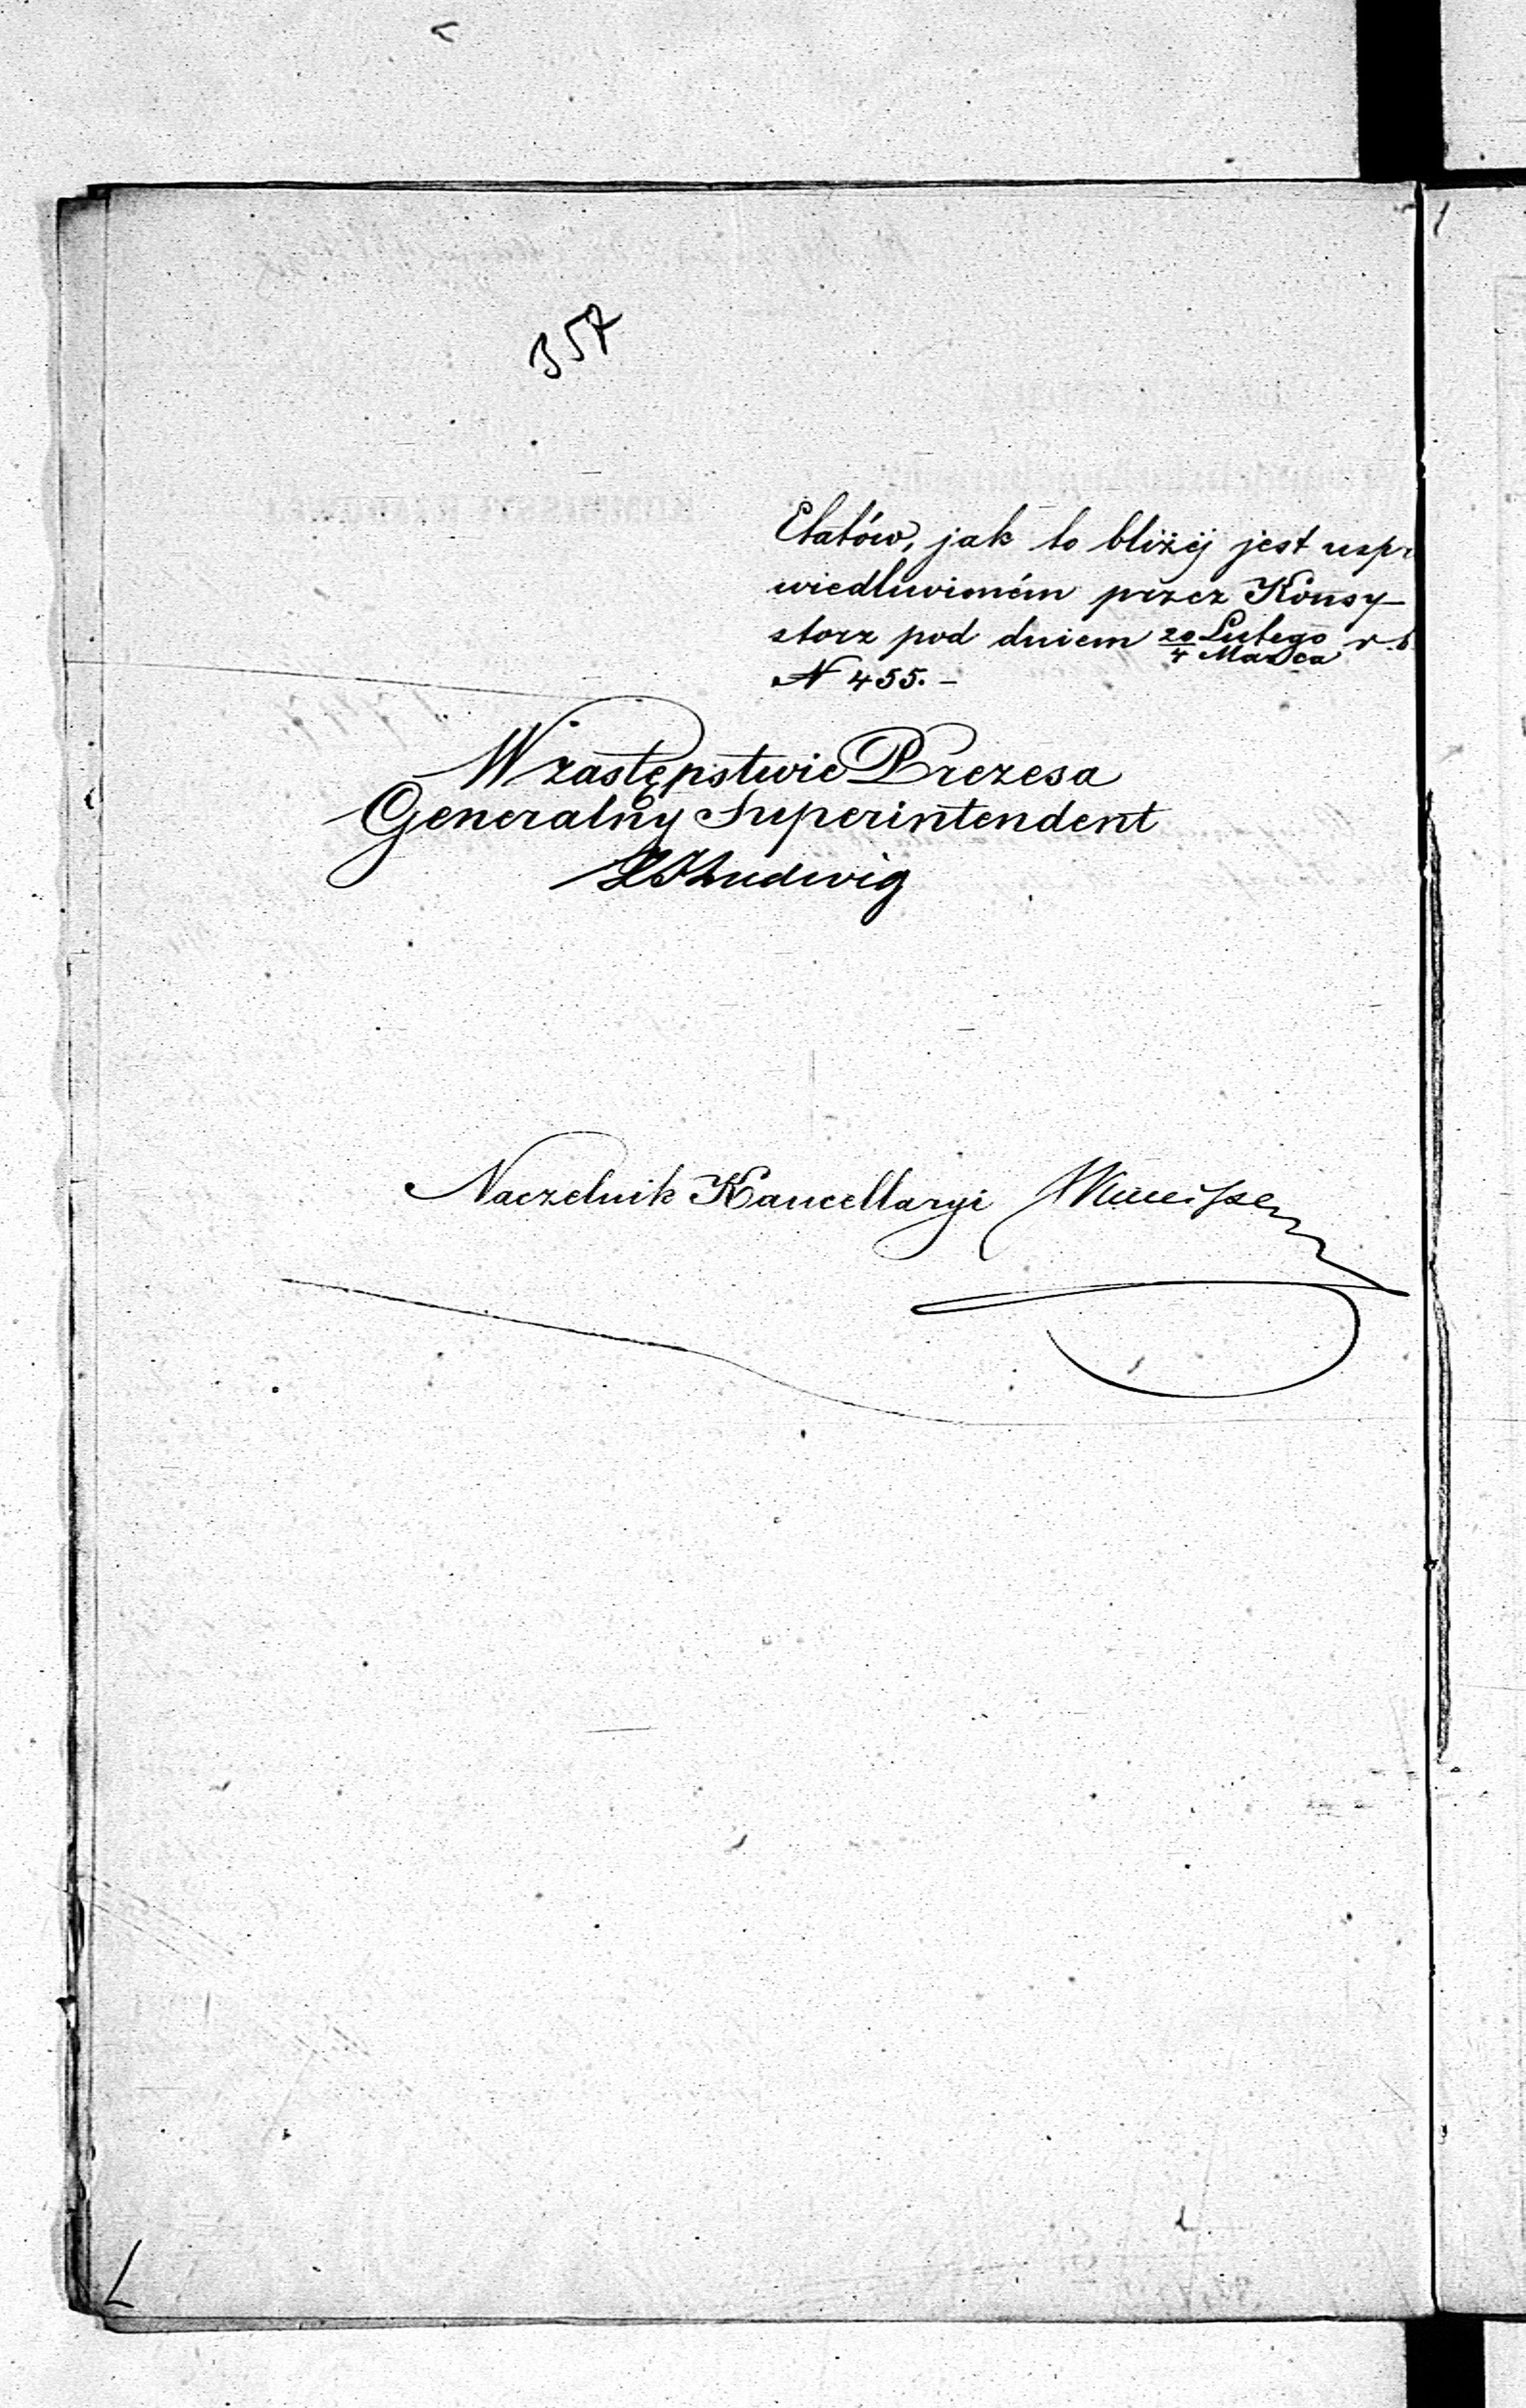 357
Etatów, jak to bliżéj jest uspr
wiedliwioném przez Konsy-
storz pod dniem 20/4 Lutego/Marca r. b.
N 455. -
W zastępstwie Prezesa
Generalny Superintendent
Ludwig
Naczelnik Kancellaryi